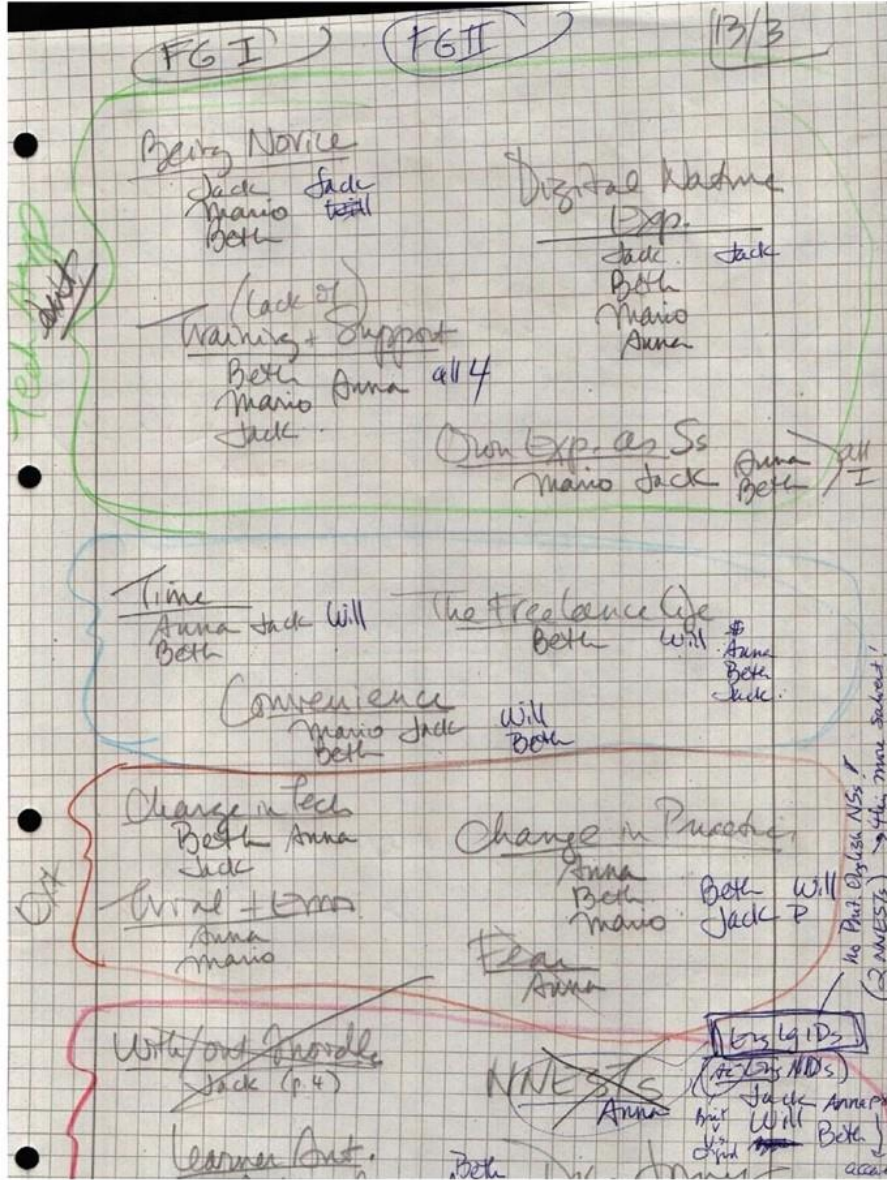 FG I FG II 13/3
Being Novice
Jack Jack
Mario Will
Beth
Digital Native
Exp.
Jack Jack
Beth
Mario
Anna
(Lack of)
Training + Support
Beth Anna all 4
Mario
Jack
Own Exp. as Ss
Mario Jack Anna
Beth
all
I
Time
Anna Jack Will
Beth
The Freelance Life
Beth Will $
Anna
Beth
Jack
Convenience
Mario Jack Will
Beth Beth
Change in Tech
Beth Anna
Jack
Trial + Error
Anna
Mario
Change in Practice
Anna
Beth Beth Will
Mario Jack P
Fear
Anna
No Brit. English NSs!
(2 NNESTs)
Eng Lg IDs
With/out Moodle
Jack (p. 4)
NNESTs
Anna
Jack Anna
Will Beth
Brit
v
US
Learner Aut.
Beth